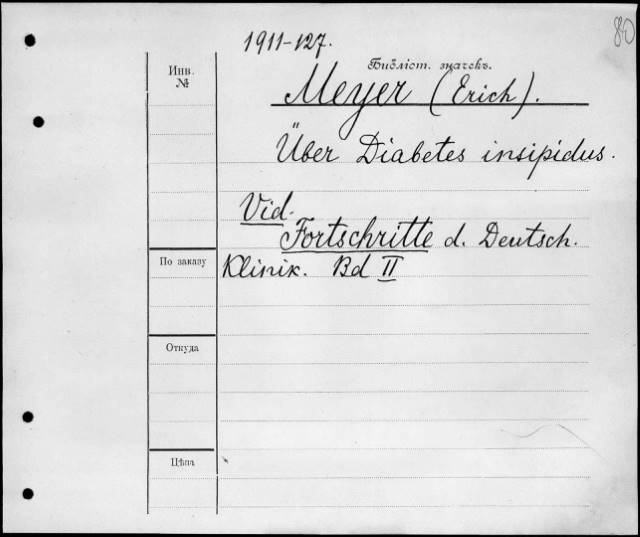 80
1911-127.
Инв.
№
Библіот. значекъ.
Meyer (Erich).
Über Diabetes insipidus.
Vid.
Fortschritte d. Deutsch.
По заказу
Klinik. Bd II
Откуда
Цѣна